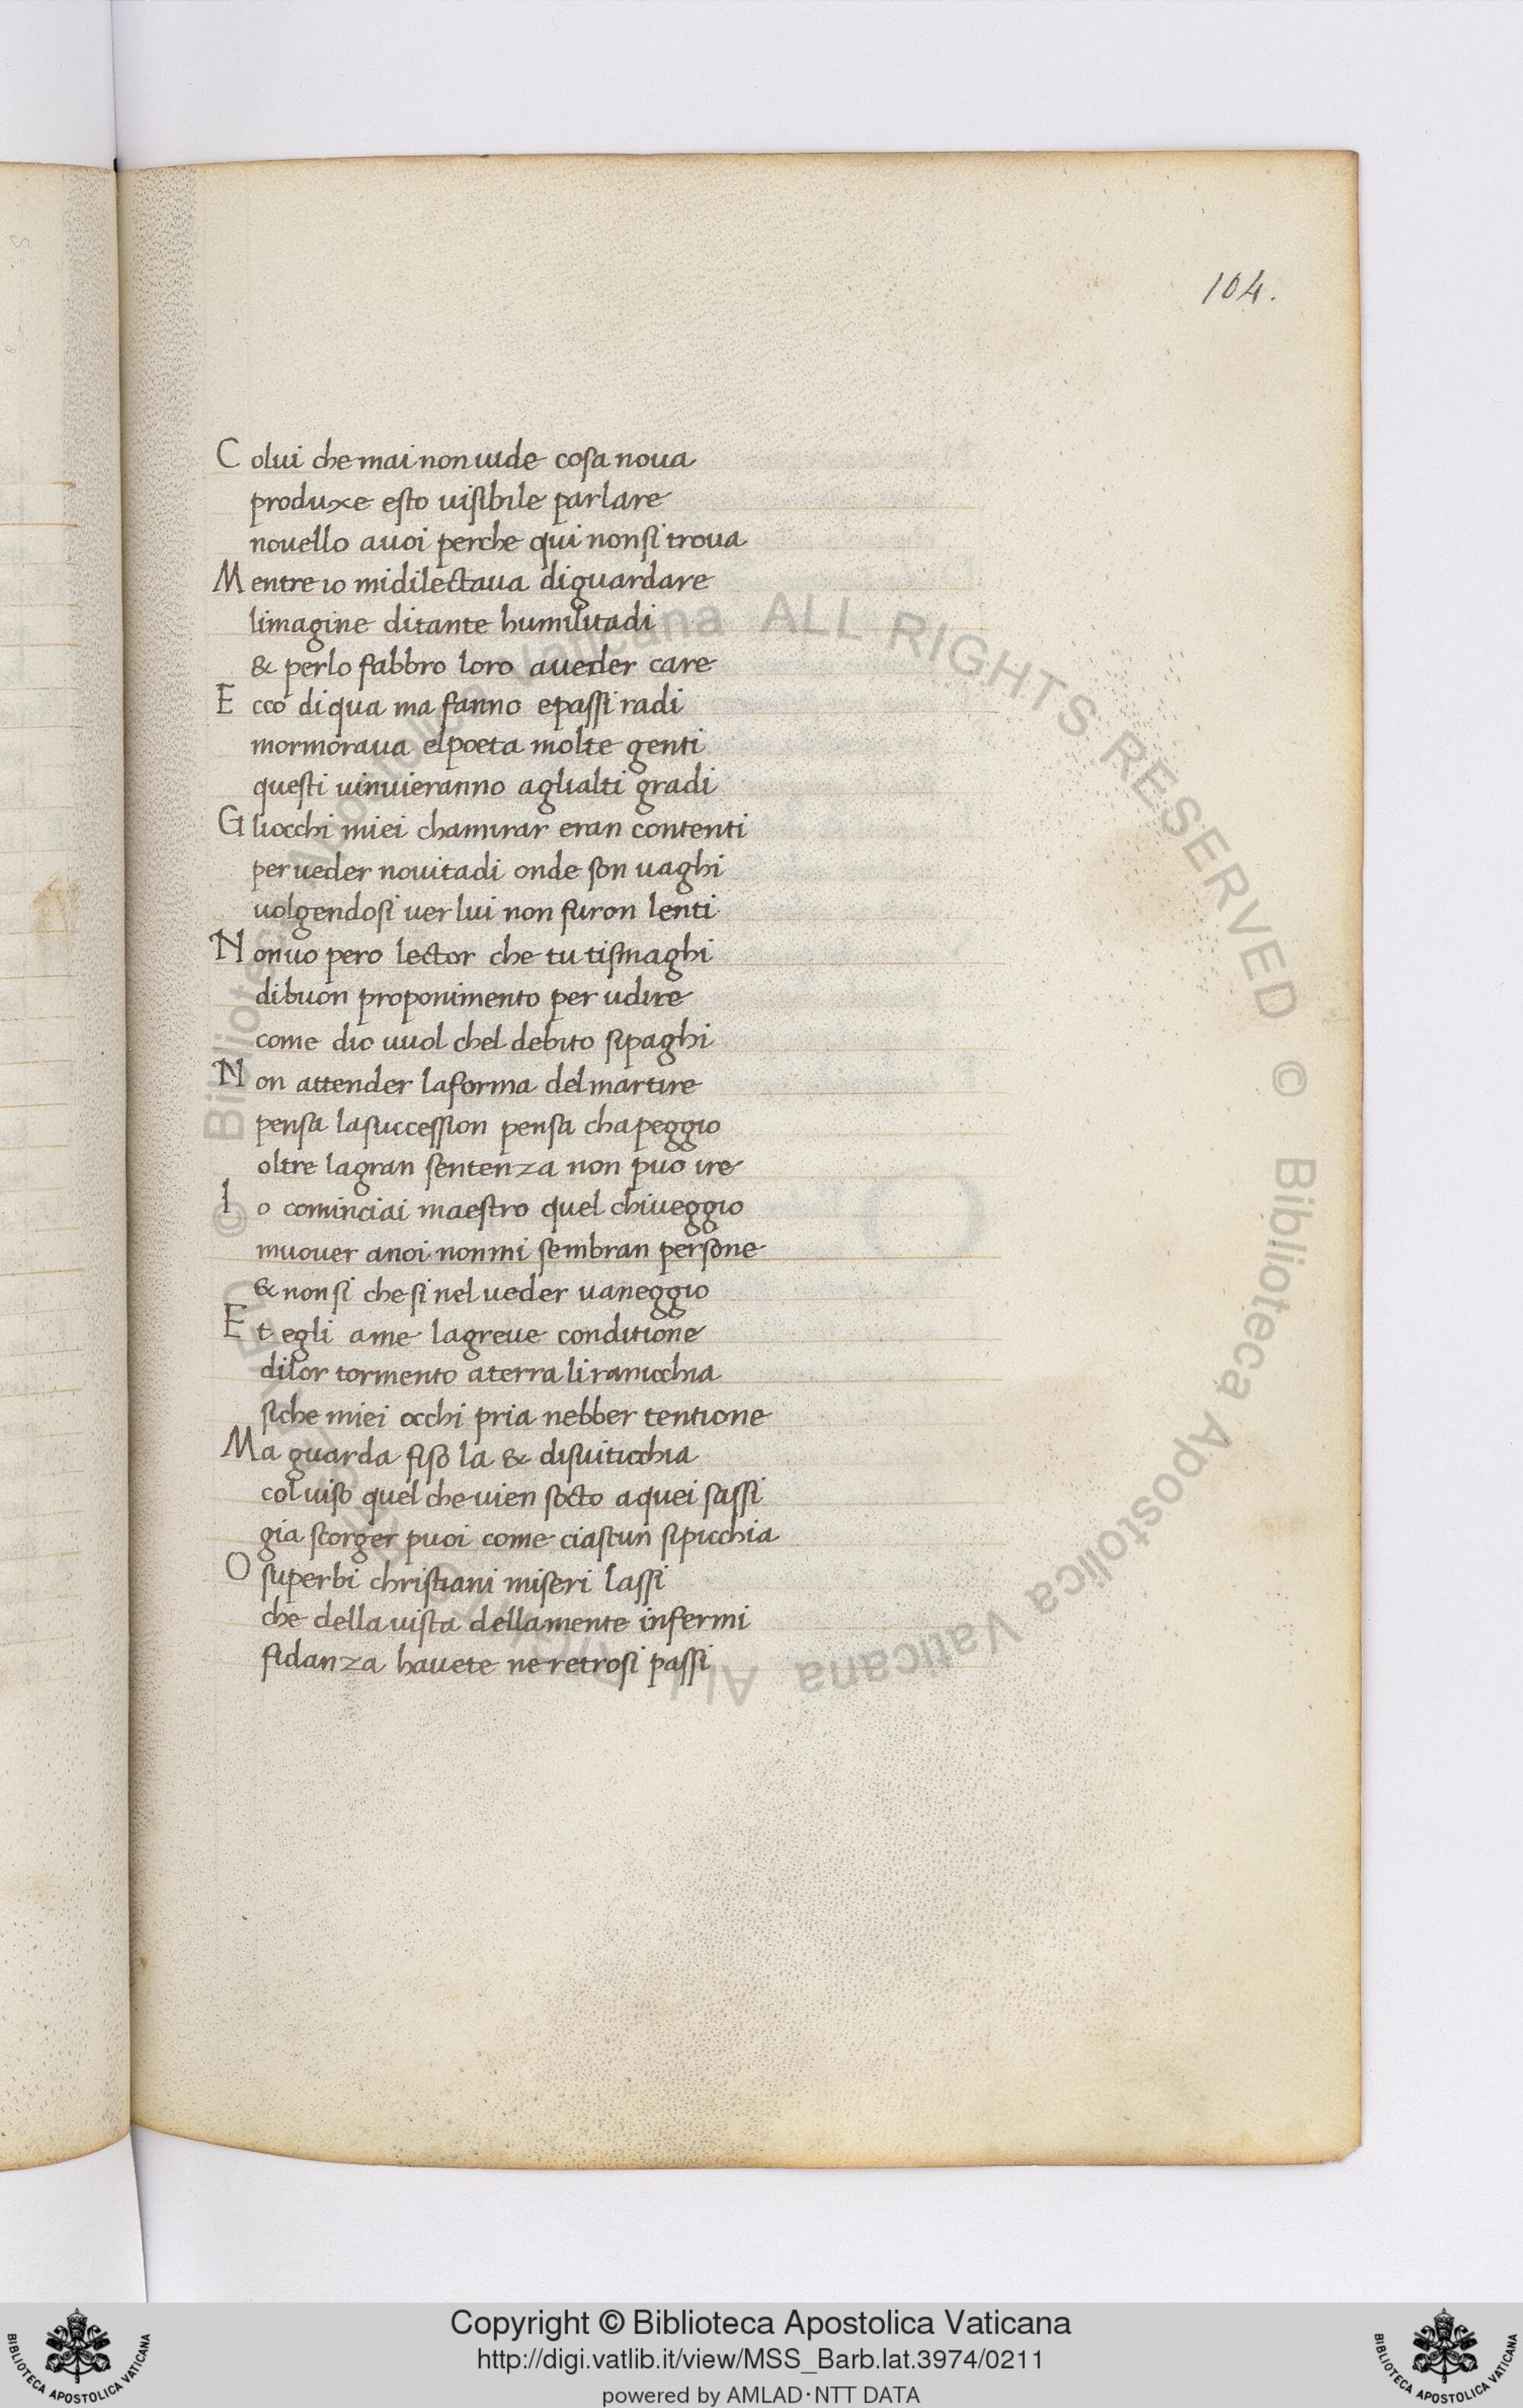 104.
Colui che mai non uide cosa noua
produxe esto uisibile parlare
nouello auoi perche qui nonsi troua
Mentre io midilectaua diguardare
limagine ditante humilitadi
& perlo fabbro loro aueder care
Ecco diqua ma fanno epassi radi
mormoraua elpoeta molte genti
questi uinuieranno aglialti gradi
Gliocchi miei chamirar eran contenti
per ueder nouitadi onde son uaghi
uolgendosi uer lui non furon lenti
Nonuo pero lector che tu tismaghi
dibuon proponimento per udire
come dio uuol chel debito sipaghi
Non attender laforma delmartire
pensa lasuccession pensa chapeggio
oltre lagran sentenza non puo ire
Io cominciai maestro quel chiueggio
muouer anoi nonmi sembran persone
& non si che si nel ueder uaneggio
Et egli ame lagreue conditione
dilor tormento aterra li ranicchia
siche miei occhi pria nebber tentione
Ma guarda fiso la & disuiticchia
col uiso quel che uien socto aquei sassi
gia scorger puoi come ciascun sipicchia
O superbi christiani miseri lassi
che della uista dellamente infermi
fidanza hauete ne retrosi passi
© Biblioteca Apostolica Vaticana ALL RIGHTS RESERVED © Biblioteca Apostolica Vaticana
Copyright © Biblioteca Apostolica Vaticana
http://digi.vatlib.it/view/MSS_Barb.lat.3974/0211
powered by AMLAD·NTT DATA
BIBLIOTECA APOSTOLICA VATICANA
BIBLIOTECA APOSTOLICA VATICANA